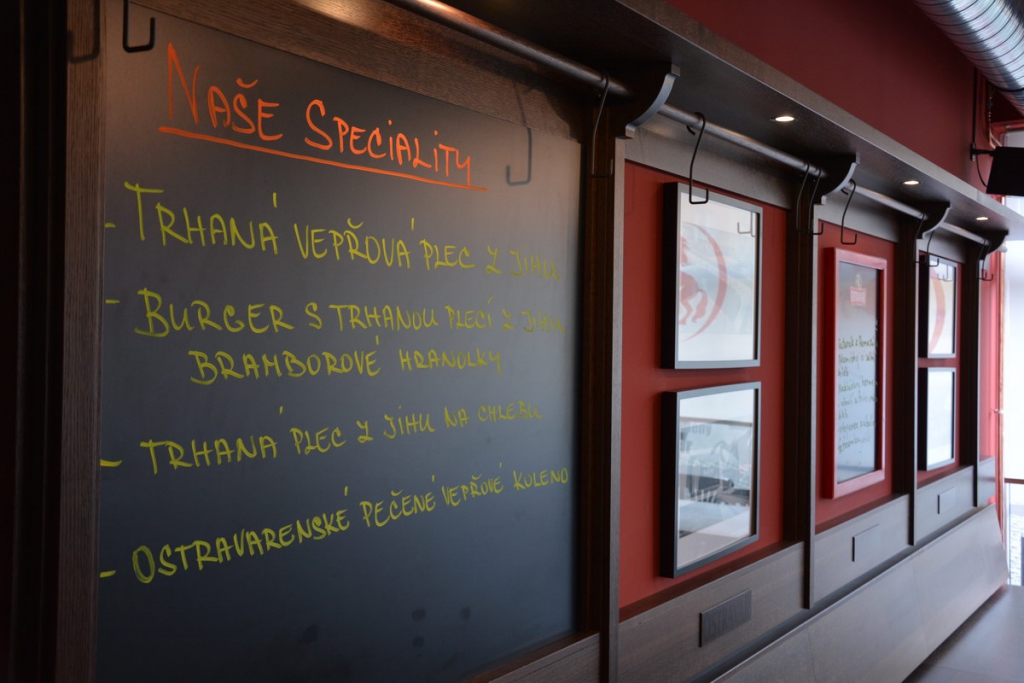 Naše Speciality
- Trhaná vepřová plec z jihu
- Burger s trhanou plecí z jihu,
bramborové hranolky
- Trhaná plec z jihu na chlebu
- Ostravarenské pečené vepřové koleno